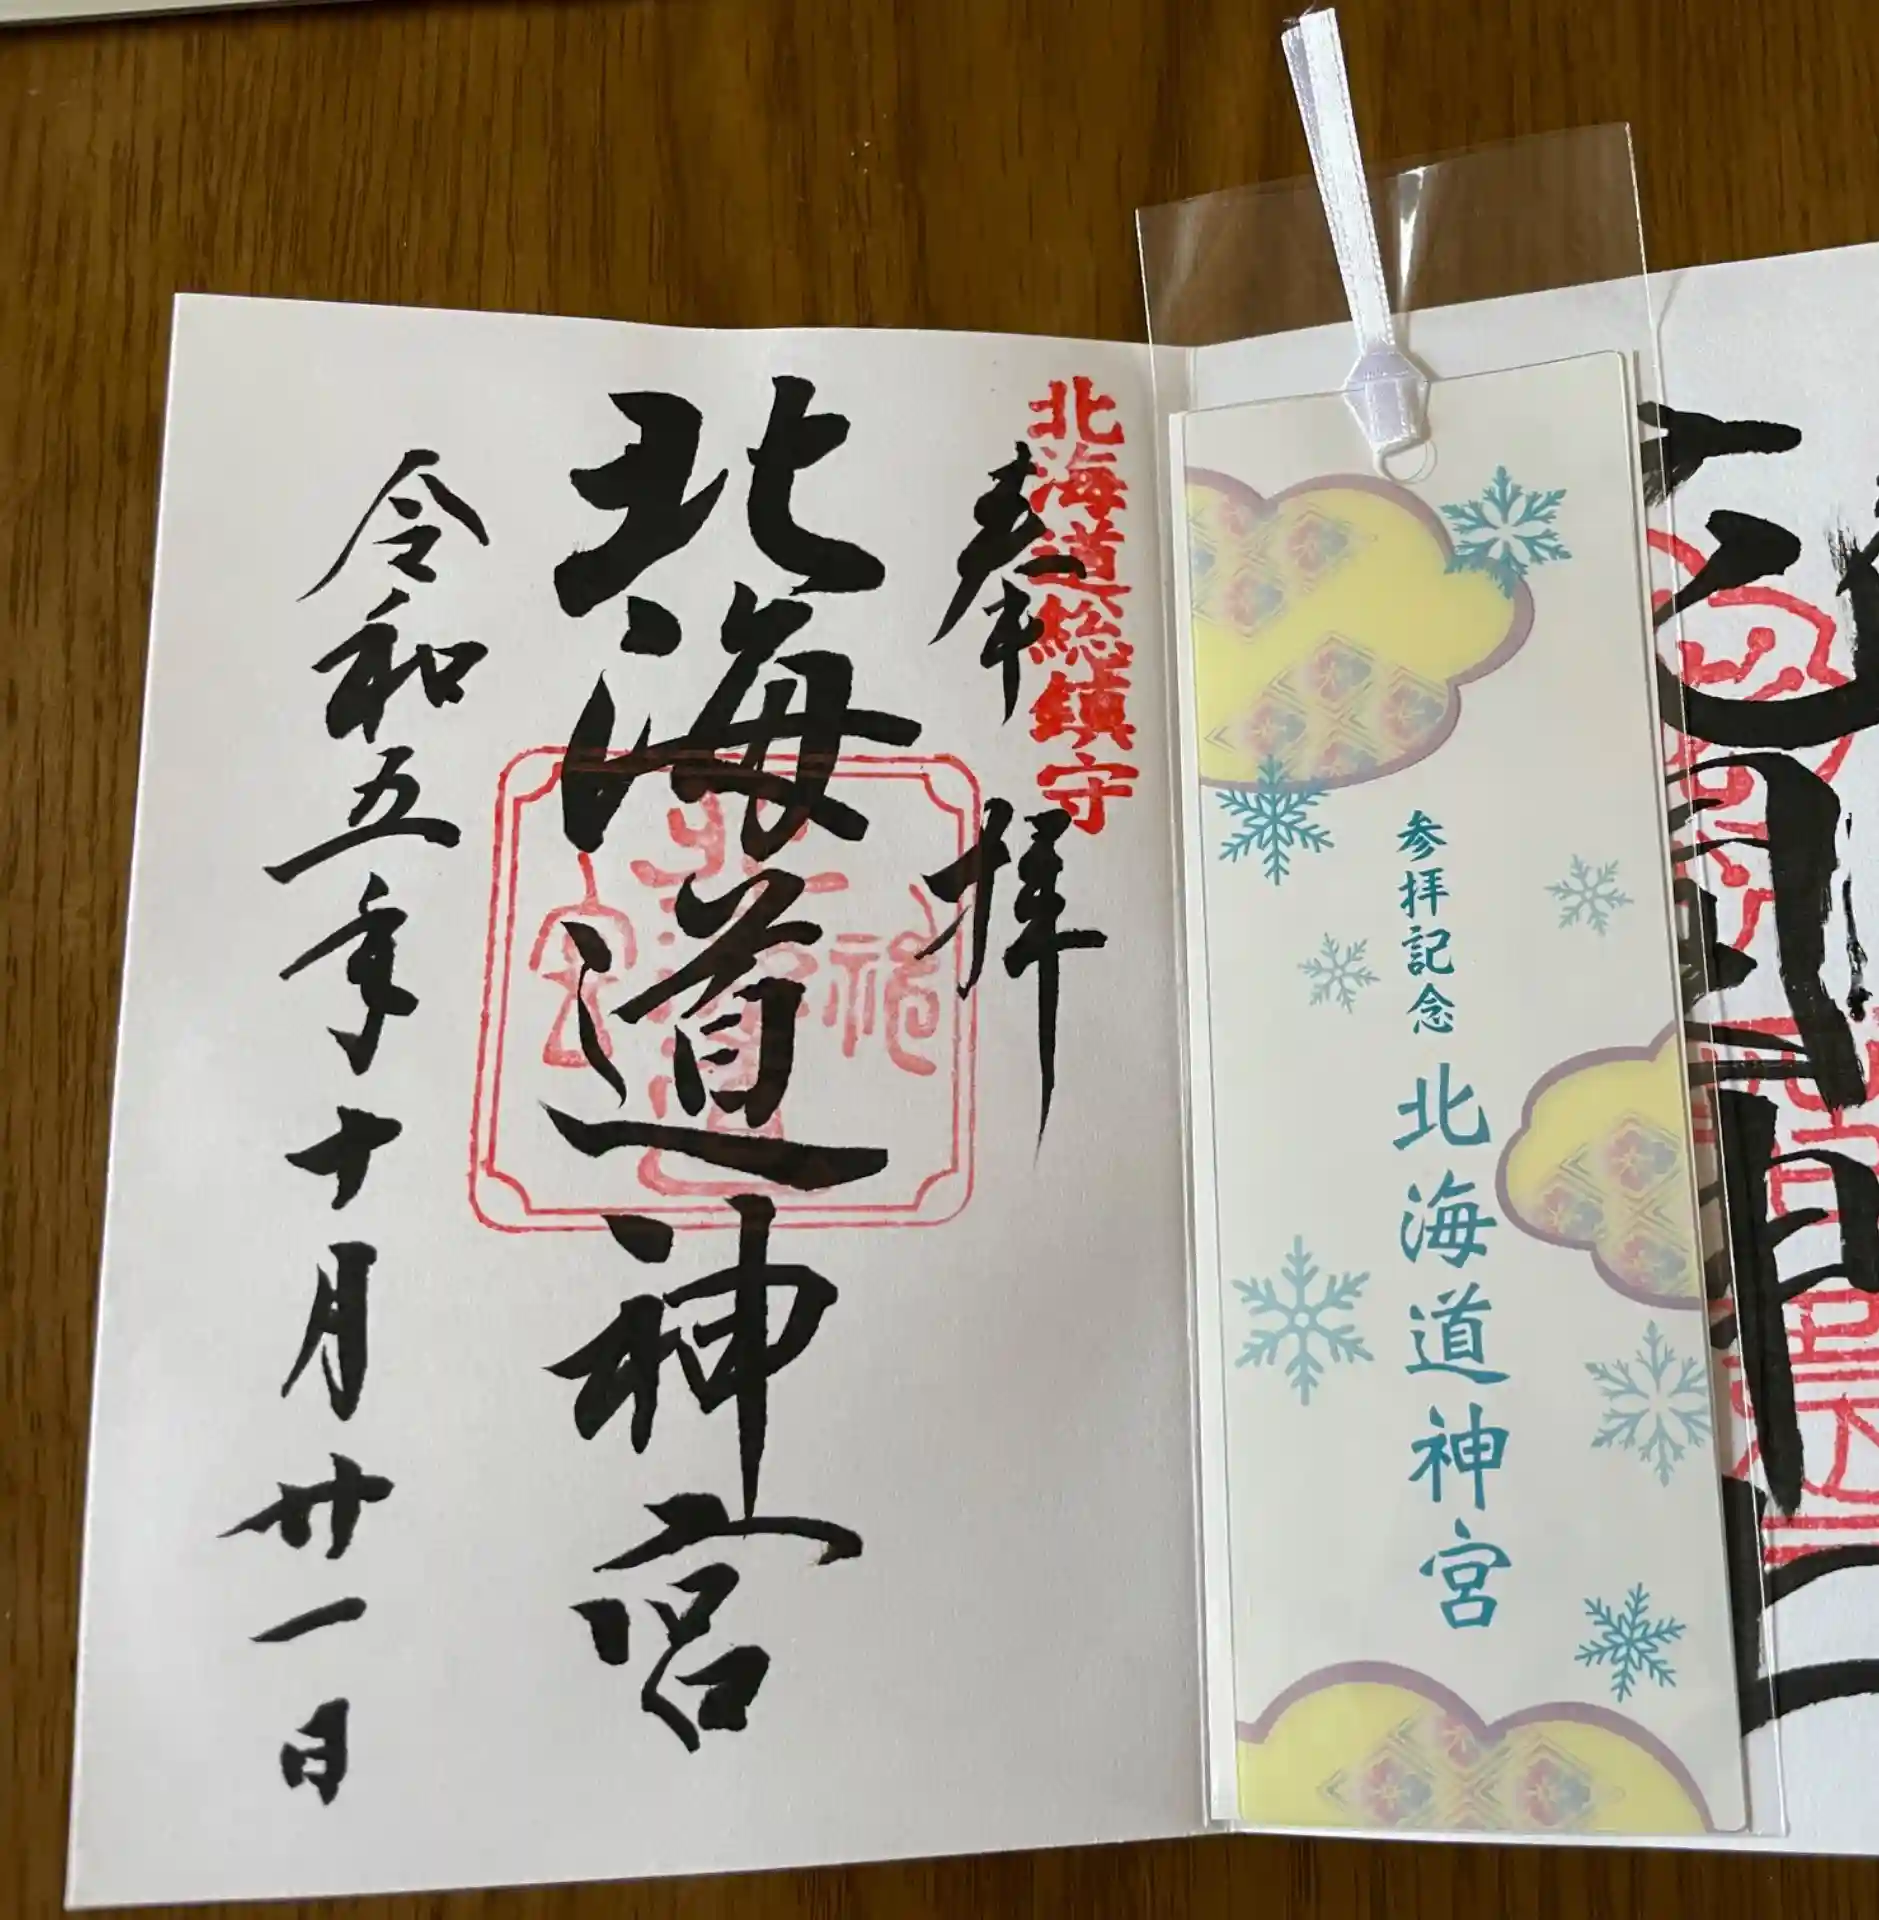 北海道総鎮守
奉拝
北海道神宮
令和五年十月廿一日
参拝記念 北海道神宮